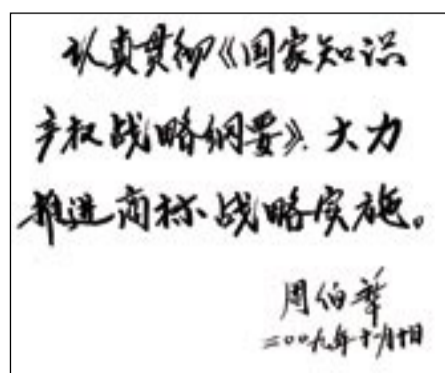 认真贯彻《国家知识
产权战略纲要》，大力
推进商标战略实施。
周伯华
二〇〇九年十一月十日